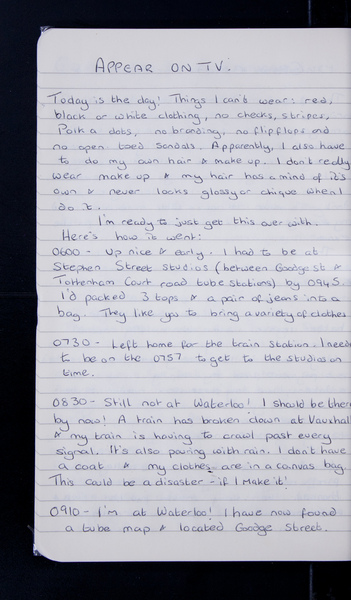 APPEAR ON TV.
Today is the day! Things I can't wear: red,
black or white clothing, no checks, stripes,
Polka dots, no branding, no flip flops and
no open toed sandals. Apparently, I also have
to do my own hair & make up. I don't really
wear make up & my hair has a mind of it's
own & never looks glossy or chique when I
do it.
I'm ready to just get this over with.
Here's how it went:
0600 - Up nice & early. I had to be at
Stephen Street Studios (between Goodge st &
Tottenham Court road tube stations) by 0945.
I'd packed 3 tops & a pair of jeans into a
bag. They like you to bring a variety of clothes
0730 - Left home for the train station. I need
to be on the 0757 to get to the studios on
time.
0830 - Still not at Waterloo! I should be there
by now! A train has broken down at Vauxhall
& my train is having to crawl past every
signal. It's also pouring with rain. I don't have
a coat & my clothes are in a canvas bag.
This could be a disaster - if I make it!
0910 - I'm at Waterloo! I have now found
a tube map & located Goodge Street.